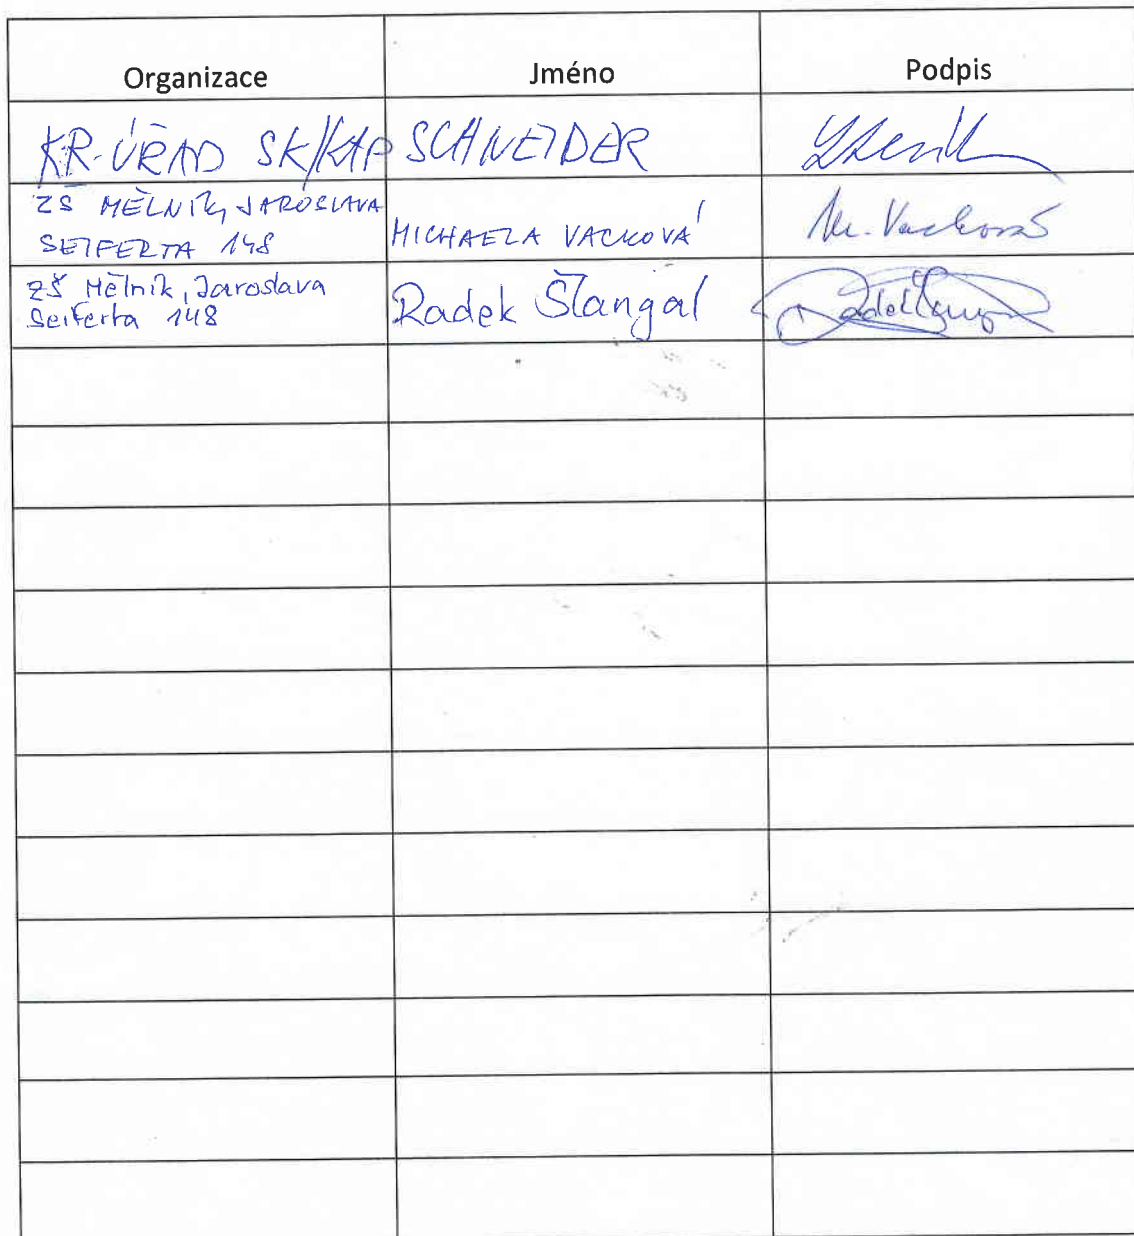 Organizace Jméno Podpis
KR. ÚŘAD SK/KAP SCHNEIDER
ZŠ MĚLNÍK, JAROSLAVA
SEIFERTA 148 MICHAELA VACKOVÁ M. Vacková
ZŠ Mělník, Jaroslava
Seiferta 148 Radek Šlangal